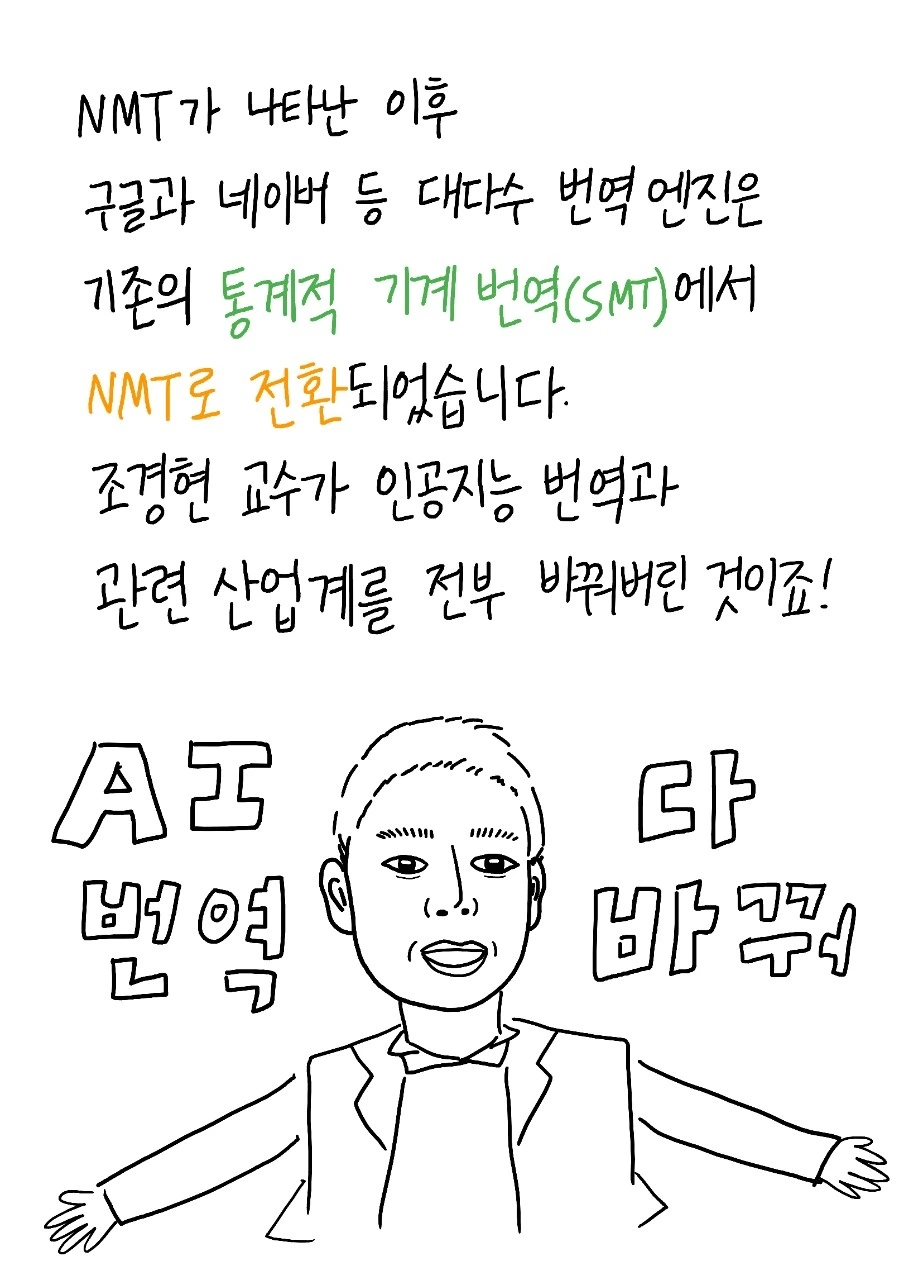 NMT가 나타난 이후
구글과 네이버 등 대다수 번역 엔진은
기존의 통계적 기계 번역(SMT)에서
NMT로 전환되었습니다.
조경현 교수가 인공지능 번역과
관련 산업계를 전부 바꿔버린 것이죠!
AI
번역
다
바꿔